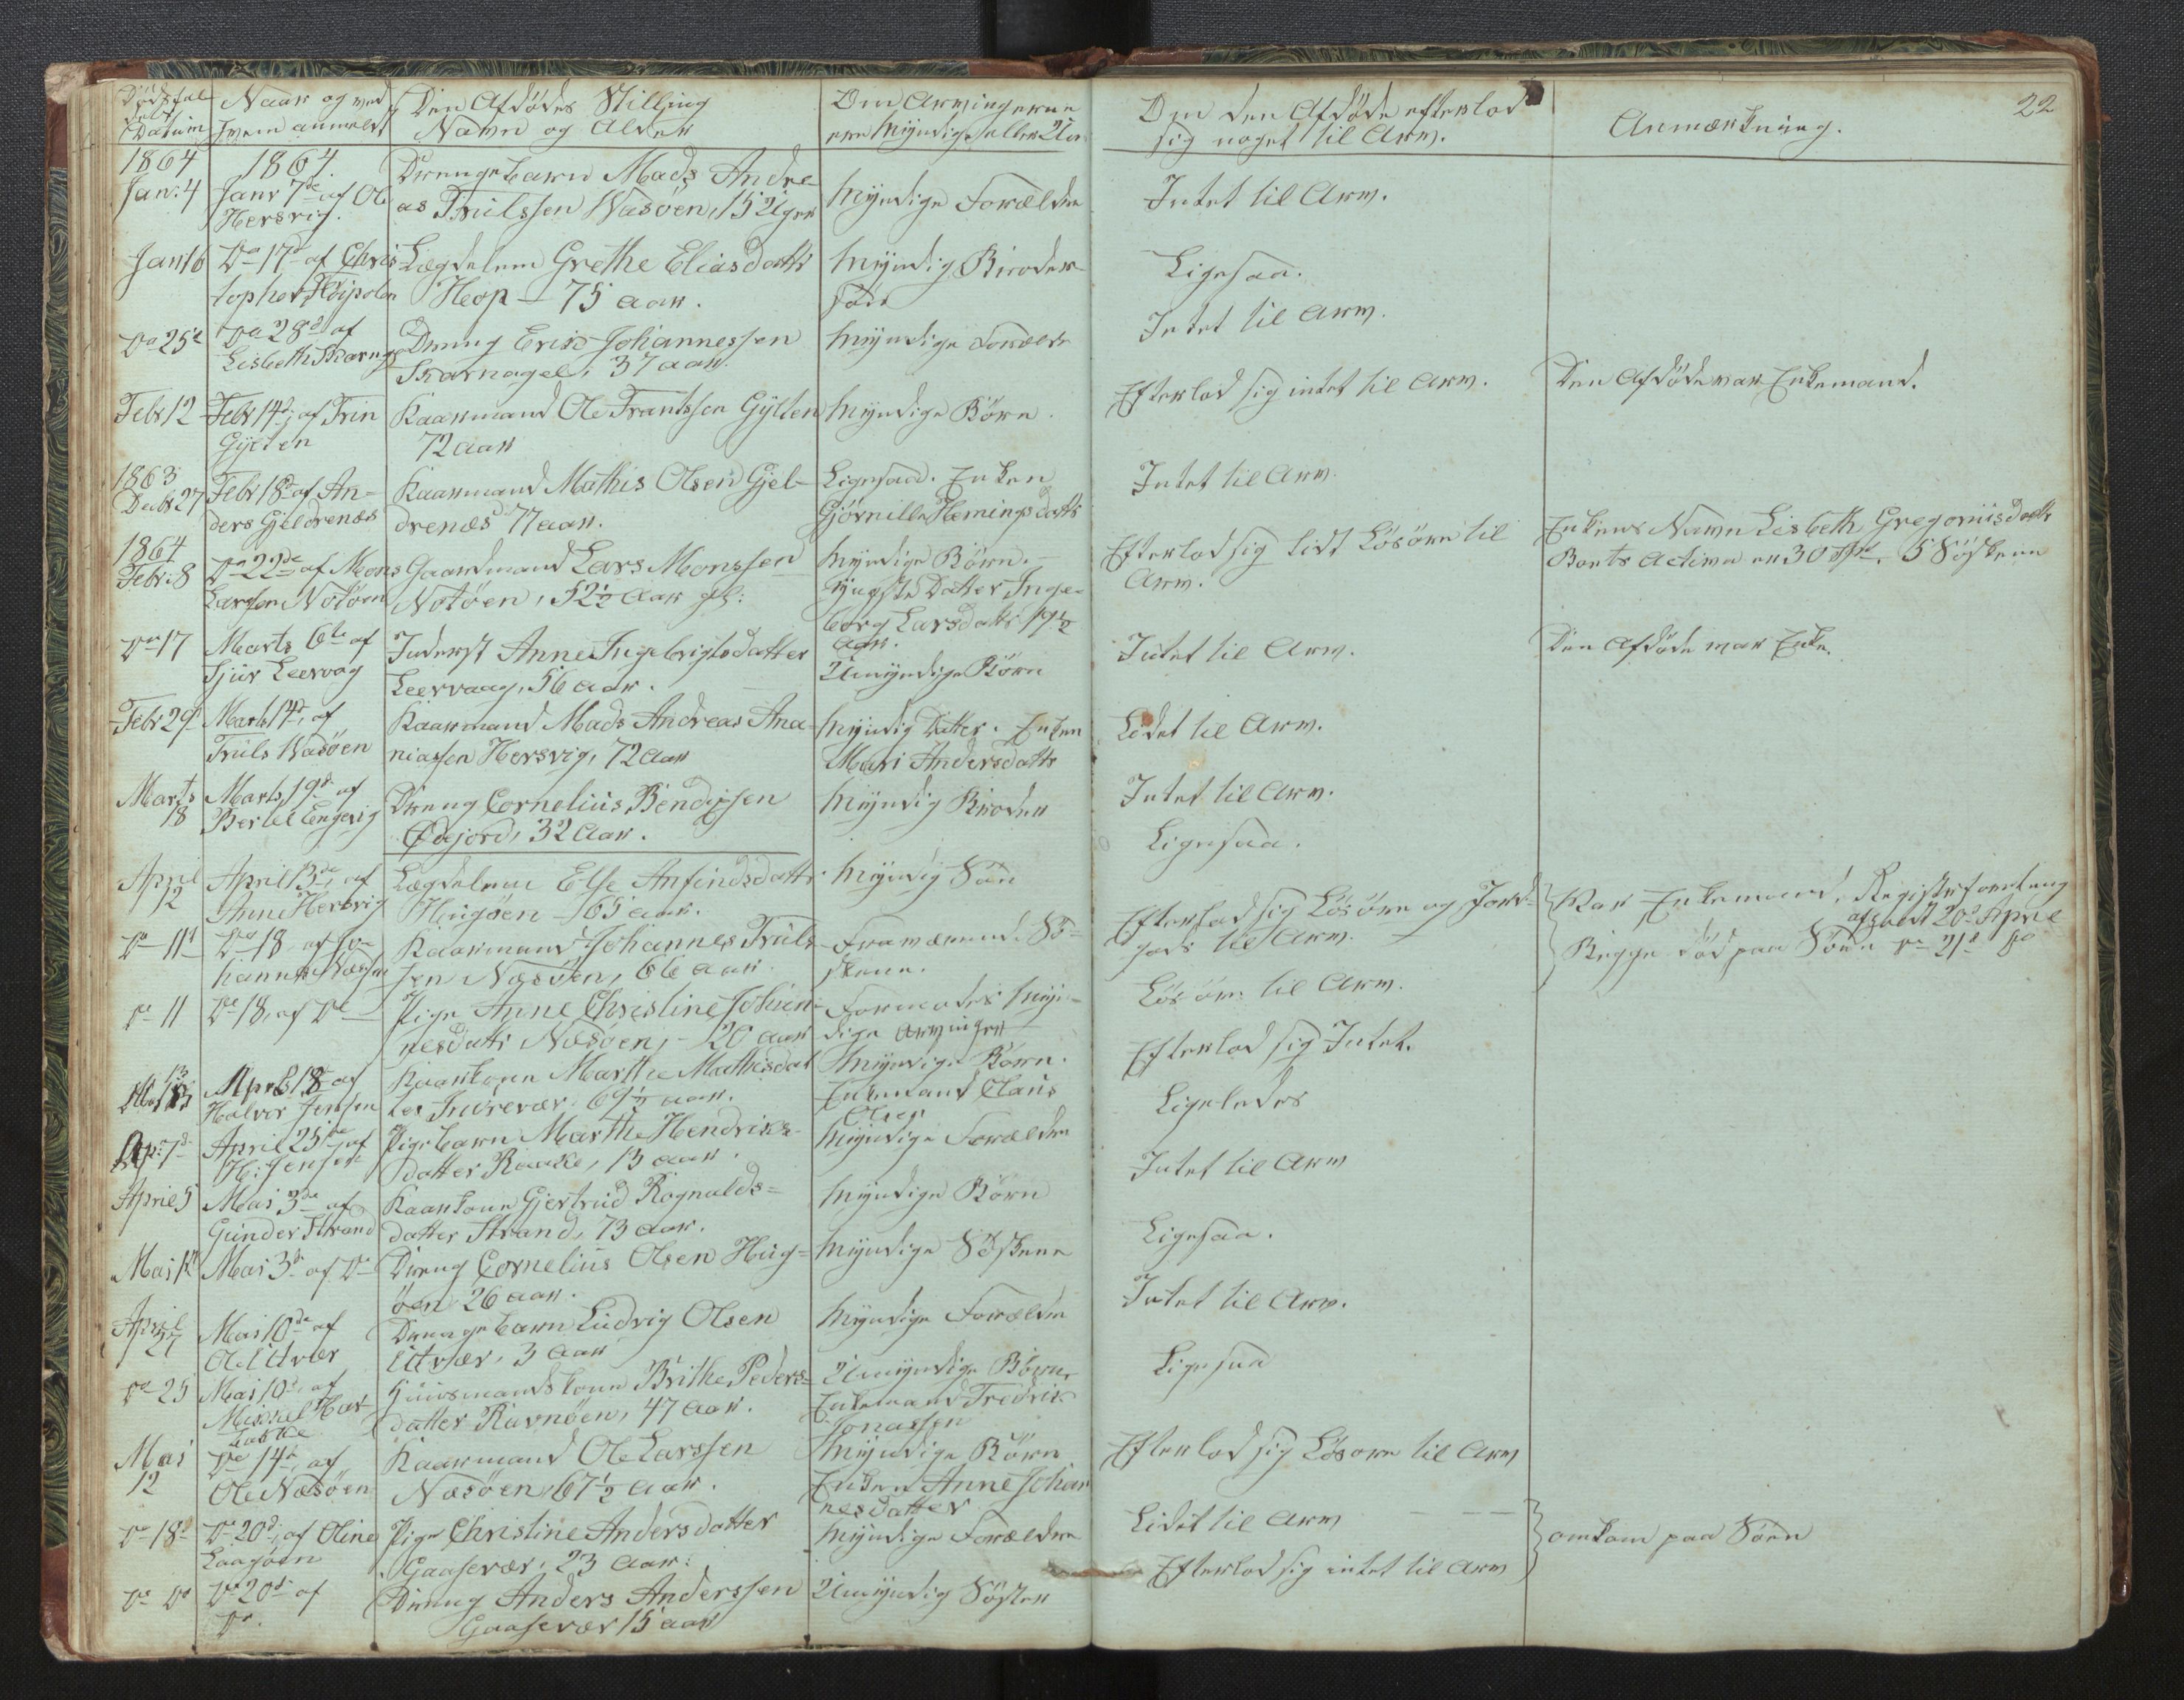 22
Dødsfal
dets
Datum
Naar og ved
hvem anmeldt
Den Afdødes Stilling
Navn og Alder
Om Arvingerne
ere myndige eller Um
Om den Afdøde efterlod
sig noget til Arv.
Anmærkning.
1864
Jan: 4
1864.
Janr 7de af Ole
Hersvig.
Drengebarn Mads Andre
as Trulssen Wasöen, 15 Uger
Myndige Forældre
Intet til Arv.
Jan 16
Do 17de af Chris
topher
Lægdslem Grethe Eliasdatter
Hop – 75 Aar.
Myndig Broder
søn
Ligesaa.
Do 25de
Do 28d af
Lisbeth Skarnage
Dreng Erik Johannessen
Skarnagel, 37 Aar.
Myndige Forældre
Intet til Arv.
Febr 12
Febr 14d, af Trin
Gylten
Kaarmand Ole Frantssen Gylten
72 Aar
Myndige Børn.
Efterlod sig intet til Arv.
Den Afdøde var Enkemand.
1863
Decbr 27
Febr 18d af An-
ders Gjeldrenæs
Kaarmand Mathis Olsen Gjel-
drenæs 77 Aar.
Ligesaa. Enken
Gjørnille Hemingsdatter
Intet til Arv.
1864
Febr. 8
Do 22de af Mons
Larssen Notöen
Gaardmand Lars Monssen
Notöen, 52½ Aar gl:
Myndige Børn. –
Yngste Datter Inge-
borg Larsdatter 19½
Aar.
Efterlod sig lidt Løsøre til
Arv.
Enkens Navn Lisbeth Gregoriusdatter
Boets Activa er 30 Spd. 5 Söskene
Do 17
Marts 6te af
Sjur Leervag
Inderst Anne Ingebrigtsdatter
Leervaag, 56 Aar.
Umyndige Børn
Intet til Arv.
Den Afdöde var Enke.
Febr 29
Marts 14d, af
Truls Wasöen
Kaarmand Mads Andreas Ana-
niassen Hersvig, 72 Aar
Myndig Datter. Enken
Mari Andersdatter
Lidet til Arv.
Marts
18
Marts 19d af
Bertel Lengevig
Dreng Cornelius Bendixsen
Ødejord, 32 Aar.
Myndig Broder
Intet til Arv.
April
12
April 13de, af
Anne Hersvig
Lægdslem Else Anfindsdatter
Hugöen – 65 Aar.
Myndig Søn
Ligesaa.
Do 11te
Do 18 af Jo-
hannes Næsøen
Kaarmand Johannes Truls-
sen Næsöen, 66 Aar.
Fraværende Sö-
skene.
Efterlod sig Løsøre og Jord-
gods til Arv.
Var Enkemand, Registerforretning
afholdt 20d April
Begge død paa Söen
Do 11
Do 18, af Do
Pige Anne Christine Johan-
nesdatter Næsöen, – 20 Aar
Formodes Myn-
dige Arvinger
Løsøre til Arv.
13
April 18 af
Halvor Jenssen
Kaarkone Marthe Mathisdat
ter Indrevær. 69½ Aar.
Myndige Børn.
Enkemand Claus
Olsen
Efterlod sig Intet.
Ap: 7d
April 25de af
H: Jenssen
Pigebarn Marthe Hendriks-
datter Raake, 13 Aar.
Myndige Forældre
Ligeledes
April 5
Mai 3de af
Gunder Strand
Kaarkone Gjertrud Rognalds-
datter Strand, 73 Aar.
Myndige Børn
Intet til Arv
Mai 1ste
Mai 3de af Do
Dreng Cornelius Olsen Hug-
öen 26 Aar.
Myndige Söskene
Ligesaa.
April
27
Mai 10de af
Ole Utvær
Drengebarn Ludvig Olsen
Utvær, 3 Aar
Myndige Forældre
Intet til Arv.
Do 25
Mai 10d, af
Mikkel
Huusmandskone Brithe Peders-
datter Ravnöen, 47 Aar.
Umyndige Børn,
Enkemand Fredrik
Jonassen
Ligesaa
Mai
12
Do 14de, af
Ole Næsöen
Kaarmand Ole Larssen
Næsöen, 67½ Aar.
Myndige Børn
Enken Anne Johan
nesdatter
Efterlod sig Løsøre til Arv
Do 18d
Do 20d, af Oline
Laagöen
Pige Christine Andersdatter
Gaasevær, 23 Aar:
Myndige Forældre
Lidet til Arv
omkom paa Söen
Do Do
Do 20d af
Do.
Dreng Anders Anderssen
Gaasevær 15 Aar
Umyndig Söster
Efterlod sig intet til Arv